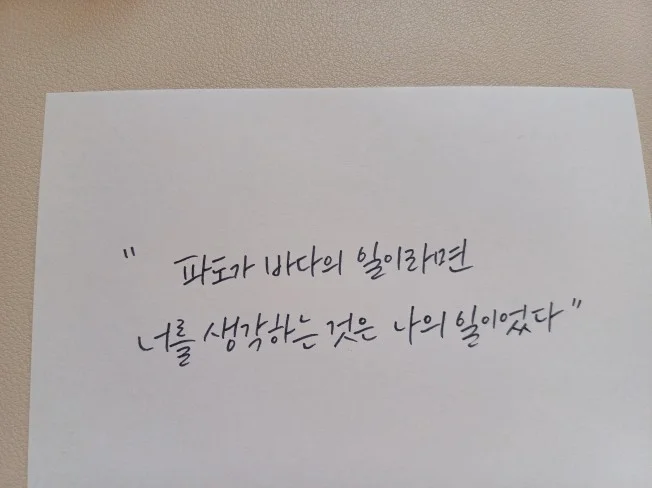 " 파도가 바다의 일이라면
너를 생각하는 것은 나의 일이었다 "